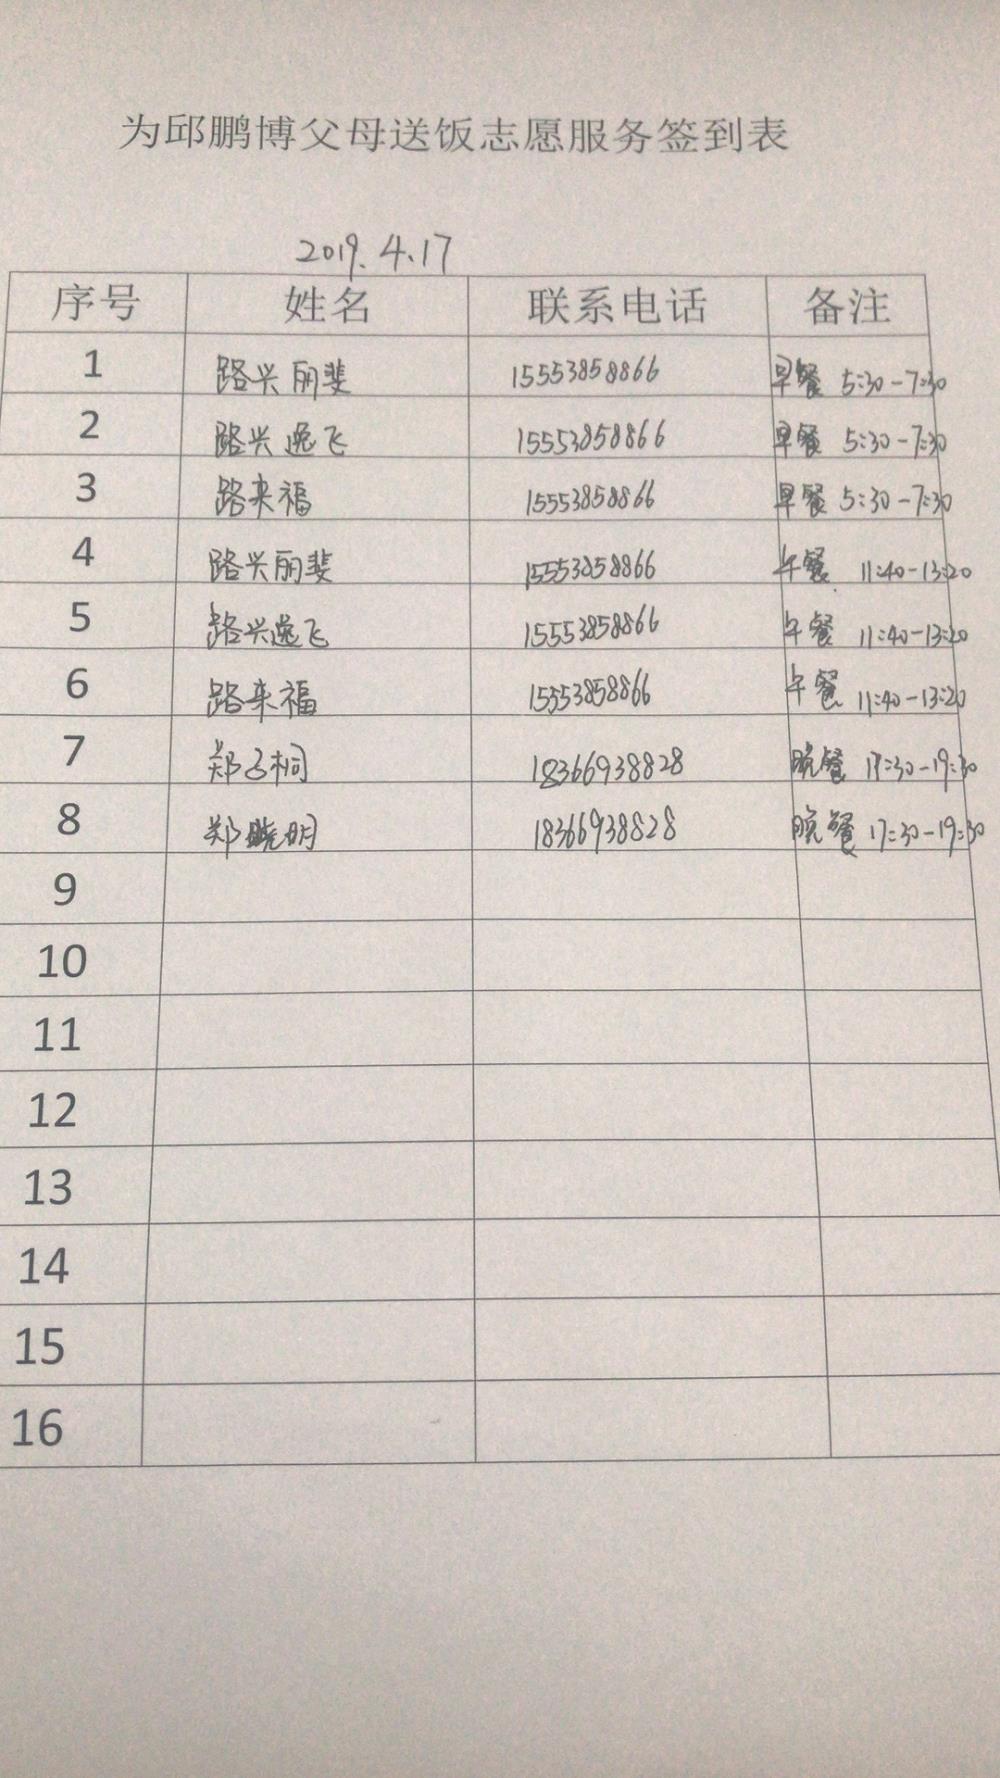 为邱鹏博父母送饭志愿服务签到表
2019.4.17
序号 姓名 联系电话 备注
1 路兴丽斐 15553858866 早餐 5:30-7:30
2 路兴逸飞 15553858866 早餐 5:30-7:30
3 路来福 15553858866 早餐 5:30-7:30
4 路兴丽斐 15553858866 午餐 11:40-13:20
5 路兴逸飞 15553858866 午餐 11:40-13:20
6 路来福 15553858866 午餐 11:40-13:20
7 郑子桐 18366938828 晚餐 17:30-19:30
8 郑晓明 18366938828 晚餐 17:30-19:30
9
10
11
12
13
14
15
16